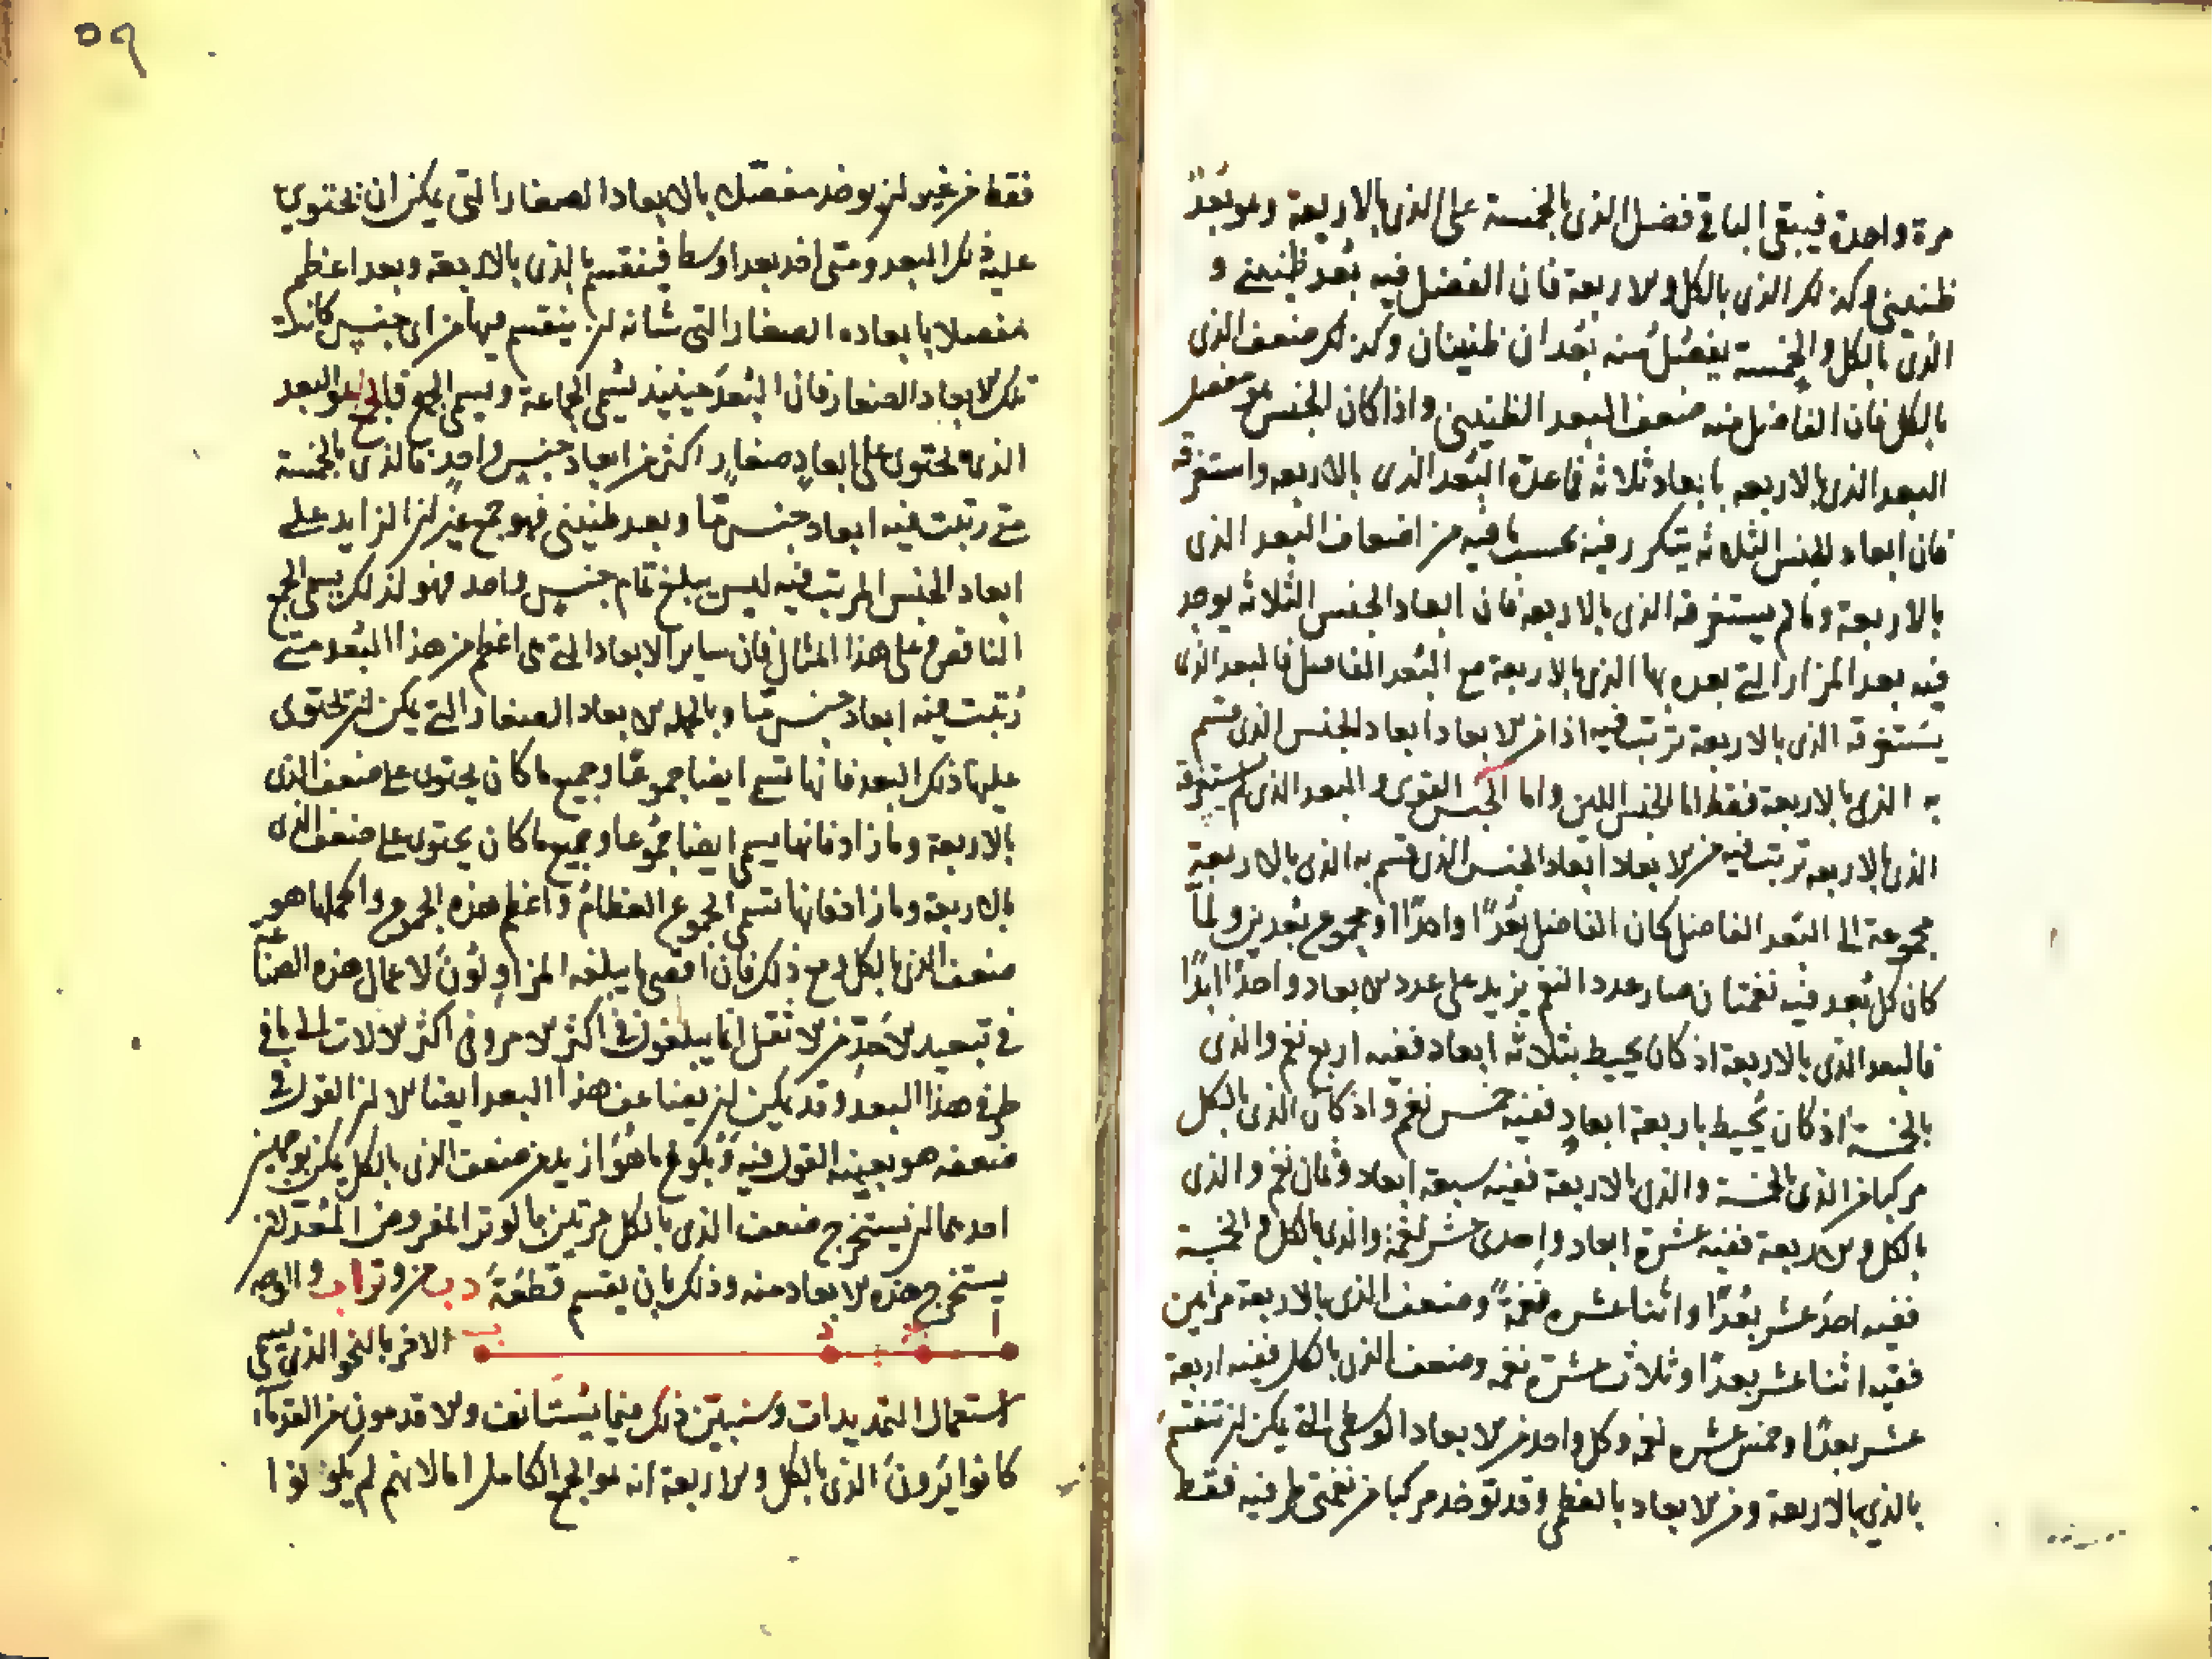 مرة واحدة فيبقى الباقي فضل الذي بالخمسة على الذي بالاربعة وهو بُعدٌ
طنيني وكذلك الذي بالكل والاربعة فان الفضل فيه بُعد طنيني و
الذي بالكل والخمسة يفضل منه بُعدان طنينان وكذلك ضعف الذي
بالكل فان الفاضل منه ضعف البعد الطنيني واذا كان الجنس هو مفصل
البعد الذي بالاربعه بابعاد ثلاثة فما عدة البُعد الذي بالاربعه واستغرقه
فان ابعاد الجنس الثلاثه يتكرر فيه بحسب ما فيه من اضعاف البُعد الذي
بالاربعة وما لم يستغرقه الذي بالاربعة فان ابعاد الجنس الثلاثه يوجد
فيه بعد المرار التي بعده بها الذي بالاربعة مع البُعد الفاضل فالبعد الذي
يستغرقه الذي بالاربعة ترتب فيه اذا من الابعاد ابعاد الجنس الذي قسم
به الذي بالاربعة فقط اما الجنس اللين واما الجنس القوى والبعد الذي لم يستغرقه
الذي بالاربعه ترتب فيه من الابعاد ابعاد الجنس الذي قسم به الذي بالاربعة
مجموعة الى البُعد الفاضل كان الفاضل بُعدًا واحدًا او مجموع بُعدين ولمّا
كان كل بُعد فيه نغمتان صار عدد النغم يزيد على عدد الابعاد واحدًا ابدًا
فالبعد الذي بالاربعة اذ كان يحيط بثلاثه ابعاد ففيه اربع نغم والذي
بالخمسة اذ كان يُحيط باربعة ابعادٍ ففيه خمس نغم واذ كان الذي بالكل
مركبا من الذي بالخمسة والذي بالاربعة ففيه سبعة ابعاد وثمان نغم والذي
بالكل والاربعة ففيه عشرة ابعاد واحدى عشر نغمة والذي بالكل والخمسة
ففيه احد عشر بُعدًا واثنا عشره نغمةً وضعف الذي بالاربعة مرتين
ففيه اثنا عشر بعدًا وثلاث عشرة نغمه وضعف الذي بالكل ففيه اربعة
عشر بعدًا وخمس عشره نغمه وكل واحد من الابعاد الوسطى التي يكن لن تنقسم
بالذي بالاربعة ومن الابعاد بالعظمى وقد توخذ مركبا من نغمتى طرفيه فقط
٥٩
فقط من غير لن يوخذ مفصلا بالابعاد الصغار التي يمكن ان تحتوي
عليه ذلك البعد ومتى اخذ بعد اوسط فينقسم بالذي بالاربعة وبعد اعظم
مفصلا بابعاده الصغار التي شانه لن ينقسم بها من اى جنس كانت
تلك الابعاد الصغار فان البُعدَ حينيذ يسمى الجماعة ويسمى الجمع فالجمع هو البعد
الذي يحتوى على ابعادٍ صغارٍ اكثر من ابعاد جنس واحد فالذي بالخمسة
متى رتبت فيه ابعاد جنس مّا وبعد طنيني فهو جمع غير لن الزايد على
ابعاد الجنس المرتب فيه ليس يبلغ تمام جنس واحد فهو لذلك يسمى الجمع
الناقص وعلى هذا المثال فان ساير الابعاد التي هى اعظم من هذا البُعد متى
رُتبت فيه ابعاد جنس مّا وبالجمله الابعاد الصغار التي يمكن لن تحتوى
عليها ذلك البعد فانها تسمى ايضا جموعًا وجميع ما كان يحتوى على ضعف الذي
بالاربعة وما زاد فانها يسمى ايضا جموعا وجميع ما كان يحتوى على ضعف الذي
بالاربعة وما زاد فانها تسمى الجموع العظام واعظم هذه الجموع واكملها هو
ضعف الذي بالكل ومع ذلك فان اقصى ما يبلغه المزاولون لاعمال هذه الصنا
في تبعيد الاحدّ من الاثقل انما يبلغون في اكثر الامر وفي اكثر الالات الى ما في
طرفى هذا البعد وقد يمكن لن يضاعف هذا البعد ايضا الا لن القول في
ضعفه هو بعينه القول فيه وبلوغ ما هو ازيد من ضعف الذي بالكل يمكن بوجهين
احدهما لن نستخرج ضعف الذي بالكل مرتين بالوتر المفروض المُعدّ لان
يستخرج هذه الابعاد منه وذلك بان يقسم قطعةُ د ب من وتر ا ب والوجه
الاخر بالنحو الذي يسمى
ا د ب
استعمال التمديدات وسنبين ذلك فيما يُستانف والاقدمون من القدماء
كانوا يَرون الذي بالكل والاربعة انه هو الجمع الكامل اما لانهم لم يكونوا